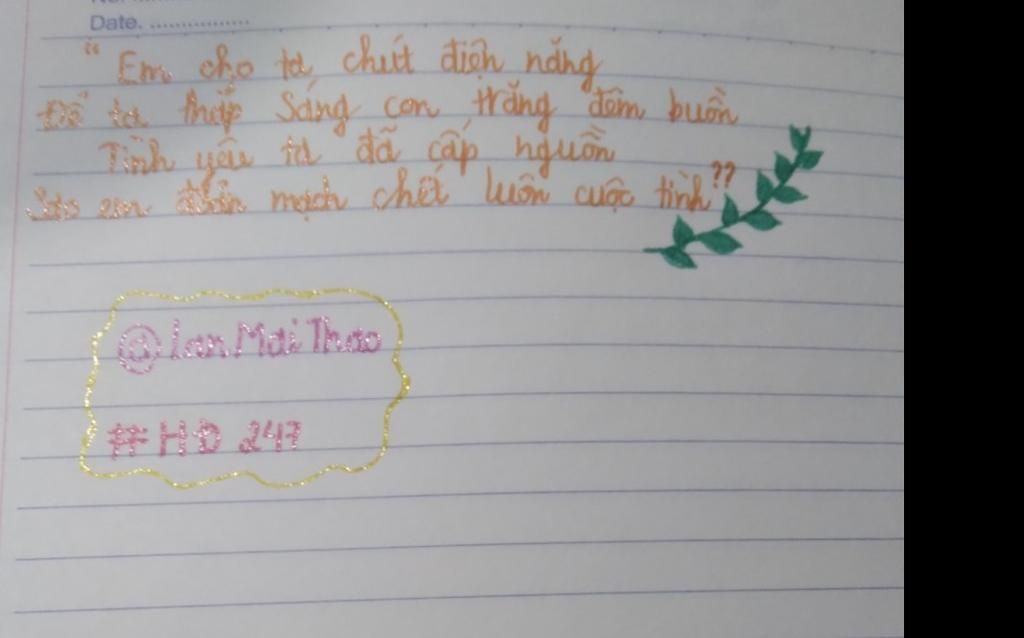 Date. ................
" Em cho ta chút điện năng
Để ta thắp sáng con trăng đêm buồn
Tình yêu ta đã cấp nguồn
Sao em đoản mạch chết luôn cuộc tình??
@lanMaiThao
#HD 247